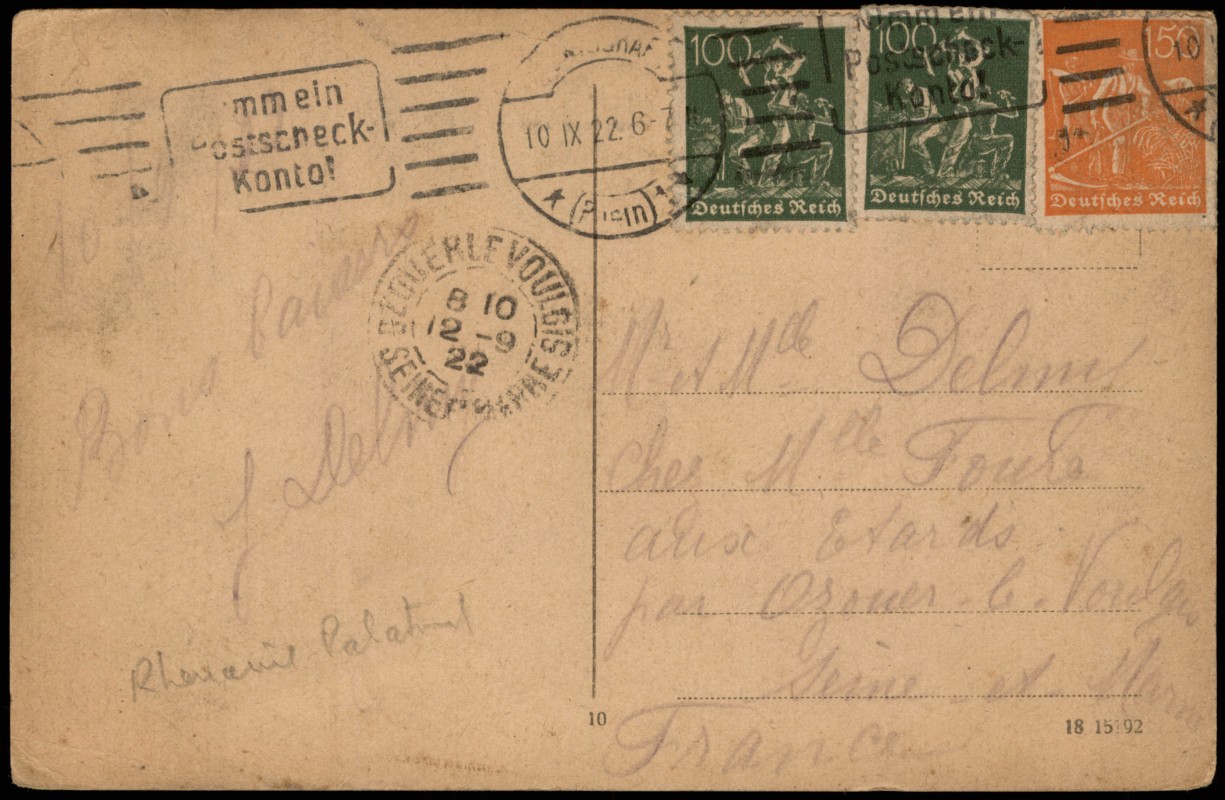 mm ein
Postscheck-
Konto!
10 IX 22. 6-
100
Deutsches Reich
mm ein
Postscheck-
Konto!
100
Deutsches Reich
150
Deutsches Reich
10
OZOUER LE VOULGIS
8 10
12 -9
22
SEINE MARNE
Bons baisers
J Delmy
Rhénanie Palatinat
Mr & Mlle Delmy
Chez Mlle
aux Etards
par Ozouer-le-Voulgis
Seine et Marne
France
10
18 15192